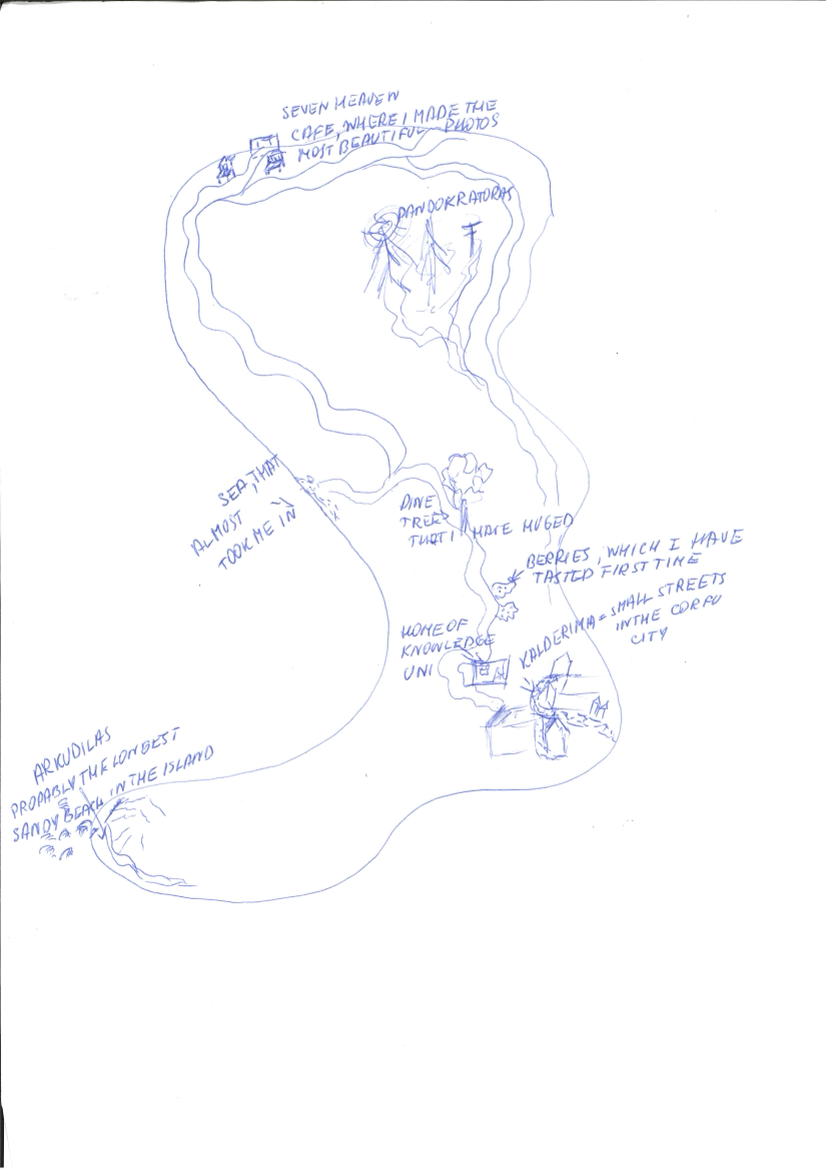 SEVEN HEAVEN
CAFE, WHERE I MADE THE
MOST BEAUTIFUL PHOTOS
PANDOKRATORAS
SEA, THAT
ALMOST
TOOK ME IN
PINE
TREE
THAT I HAVE HUGED
BERRIES, WHICH I HAVE
TASTED FIRST TIME
HOME OF
KNOWLEDGE
UNI
KALDERIMA = SMALL STREETS
IN THE CORFU
CITY
ARKUDILAS
PROPABLY THE LONGEST
SANDY BEACH IN THE ISLAND